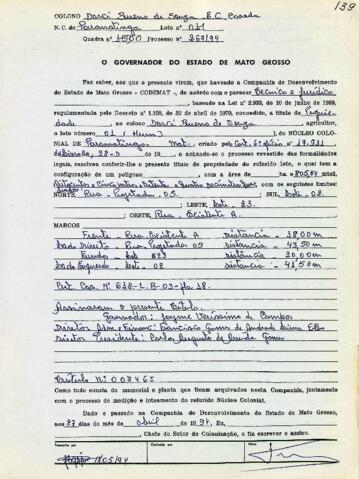 139
COLONO Darci Bueno de Souza E.C. Casada
N. C. de Paranatinga Lote nº 01
Quadra nº Processo nº 367/94
O GOVERNADOR DO ESTADO DE MATO GROSSO
Faz saber, aos que o presente virem, que havendo a Companhia de Desenvolvimento
do Estado de Mato Grosso - CODEMAT -, de acordo com o parecer Técnico e Jurídico
, baseado na Lei nº 2.933, de 10 de junho de 1969,
regulamentada pelo Decreto nº 1.138, de 30 de abril de 1970, concedido, a título de Proprie
dade, ao colono Darci Bueno de Souza, agricultor,
o lote número 01 (Hum), do NÚCLEO COLO-
NIAL DE Paranatinga Mat. criado pelo
de 19 , e achando-se o processo revestido das formalidades
legais, resolveu conferir-lhe o presente título de propriedade do referido lote, o qual tem a
configuração de um polígono , com a área de ha mts2,
, com os seguintes limites:
NORTE Rua Projetada 05 ; SUL Lote 02
; LESTE Lote 23
; OESTE, Rua Existente A
MARCOS
Frente Rua Existente A distância - 18,00m
Lado Direito Rua Projetada 05 distância - 43,50m
Fundos Lote 23 distância - 20,00m
Lado Esquerdo Lote 02 distância - 41,50m
Assinaram o presente Título.
Governador: Jayme Veríssimo de Campos
Diretor Adm. e Financ: Francisco Gomes de Andrade Lima
Diretor Presidente: Carlos Augusto de Arruda Gomes
Título Nº 003465
Como tudo consta do memorial e planta que ficam arquivados nesta Companhia, juntamente
com o processo de medição e loteamento do referido Núcleo Colonial.
Dado e passado na Companhia de Desenvolvimento do Estado de Mato Grosso,
aos 27 dias do mês de abril de 1994, Eu,
, Chefe do Setor de Colonização, o fiz escrever e assino.
Transcrito por Conferido por Visto
/05/94